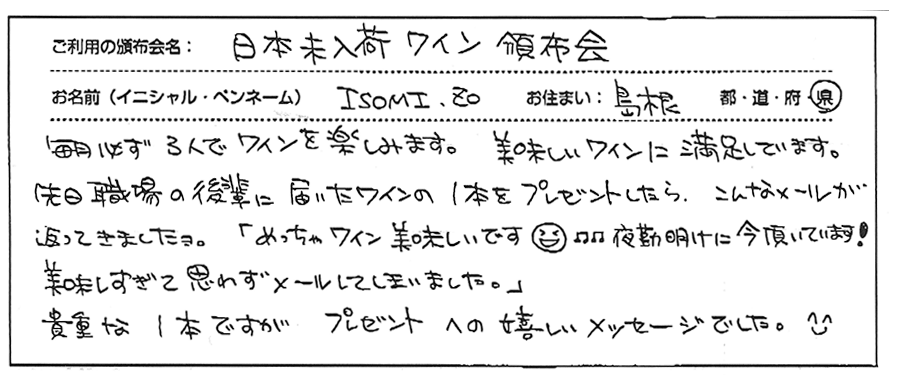 ご利用の頒布会名： 日本未入荷 ワイン 頒布会
お名前（イニシャル・ペンネーム） ISOMI.ZO お住まい： 島根 都・道・府・県
毎月必ず 3人で ワインを楽しみます。 美味しいワインに満足しています。
先日職場の後輩に届いたワインの1本をプレゼントしたら、こんなメールが
返ってきましたヨ。「めっちゃワイン美味しいです😆♫♫夜勤明けに今頂いています!
美味しすぎて思わずメールしてしまいました。」
貴重な1本ですが プレゼントへの嬉しいメッセージでした。^^